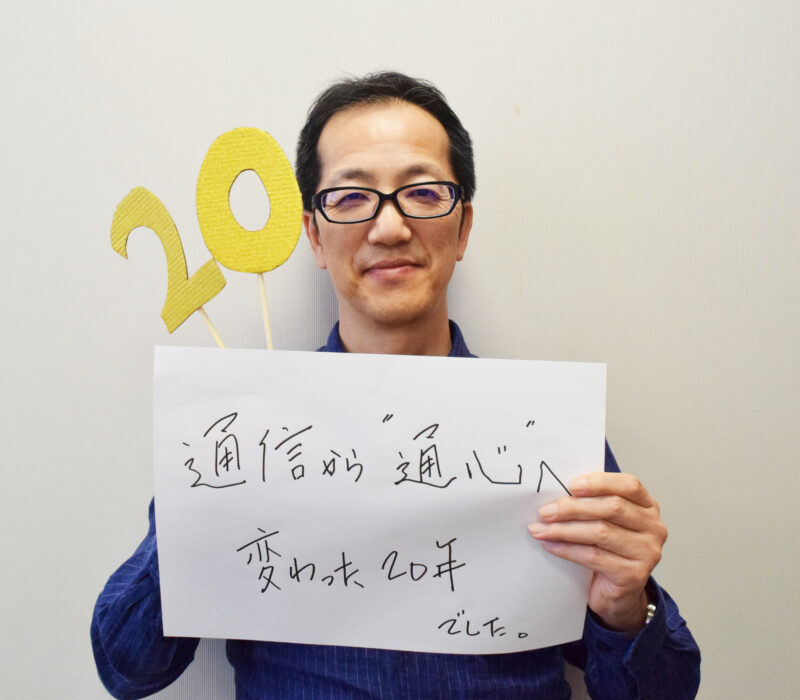 20
通信から"通心"へ
変わった20年
でした。